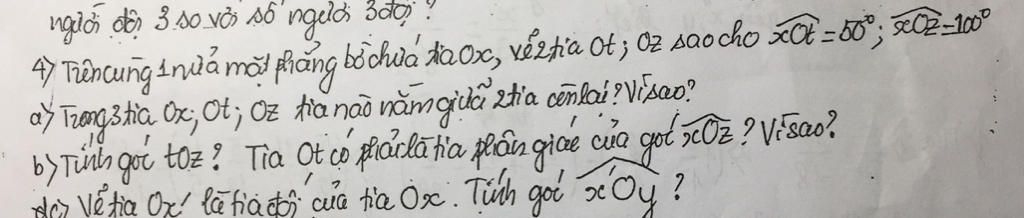 người đội 3 so với số người 3 đội?
4) Trên cùng 1 nửa mặt phẳng bờ chứa tia Ox, vẽ 2 tia Ot; Oz sao cho xOt = 50°; xOz = 100°
a) Trong 3 tia Ox; Ot; Oz tia nào nằm giữa 2 tia còn lại? Vì sao?
b) Tính góc tOz? Tia Ot có phải là tia phân giác của góc xOz? Vì sao?
c) Vẽ tia Ox' là tia đối của tia Ox. Tính góc x'Oy?